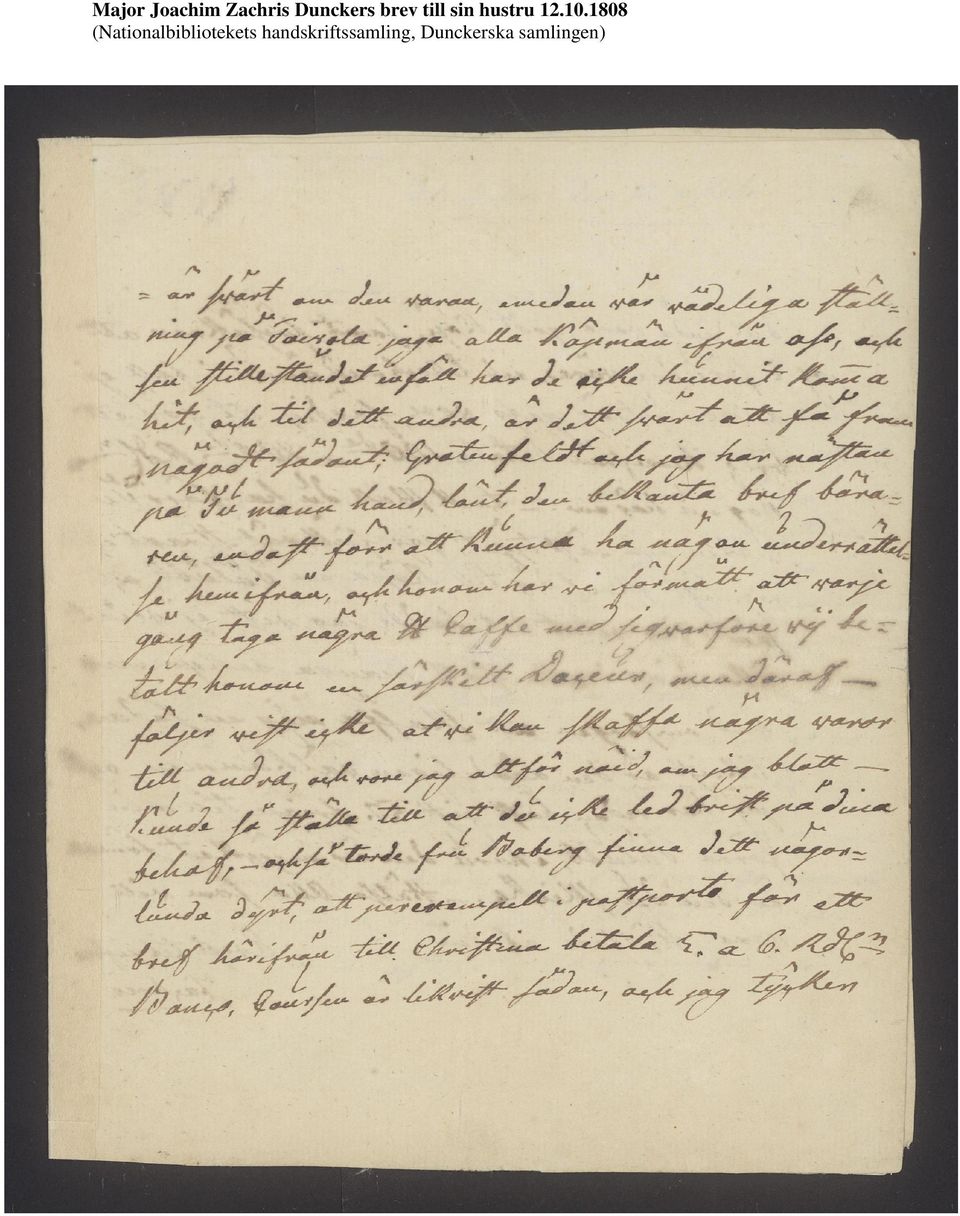 Major Joachim Zachris Dunckers brev till sin hustru 12.10.1808
(Nationalbibliotekets handskriftssamling, Dunckerska samlingen)
= är swårt om den waran, emedan wår wådeliga ställ=
ning på Toivola jaga alla Köpmän ifrån oss, och
sen stilleståndet inföll har de icke hunnit Kom̅a
hit, och til dett andra, är dett swårt att få fram
någodt sådant; Grotenfeldt och jag har nästan
på Tu mann hand, lönt, den bekanta bref bära=
ren, endast förr att Kunna ha någon underrättel=
se hemifrån, och honom har vi förmått att warje
gång taga några ℔ Caffe med sig warföre wij be=
talt honom en särskilt Doceur, men däraf —
följer wist icke at vi kan skaffa några waror
till andra, och vore jag altför nöid, om jag blott —
Kunde så ställa till att du icke led brist på dina
behof, — också torde fru Boberg finna dett någor=
lunda dyrt, att per exempell i postporto för ett
bref härifrån till Christina betala 5. a 6. Rd
Banco, Coursen är likvist sådan, och jag tycker